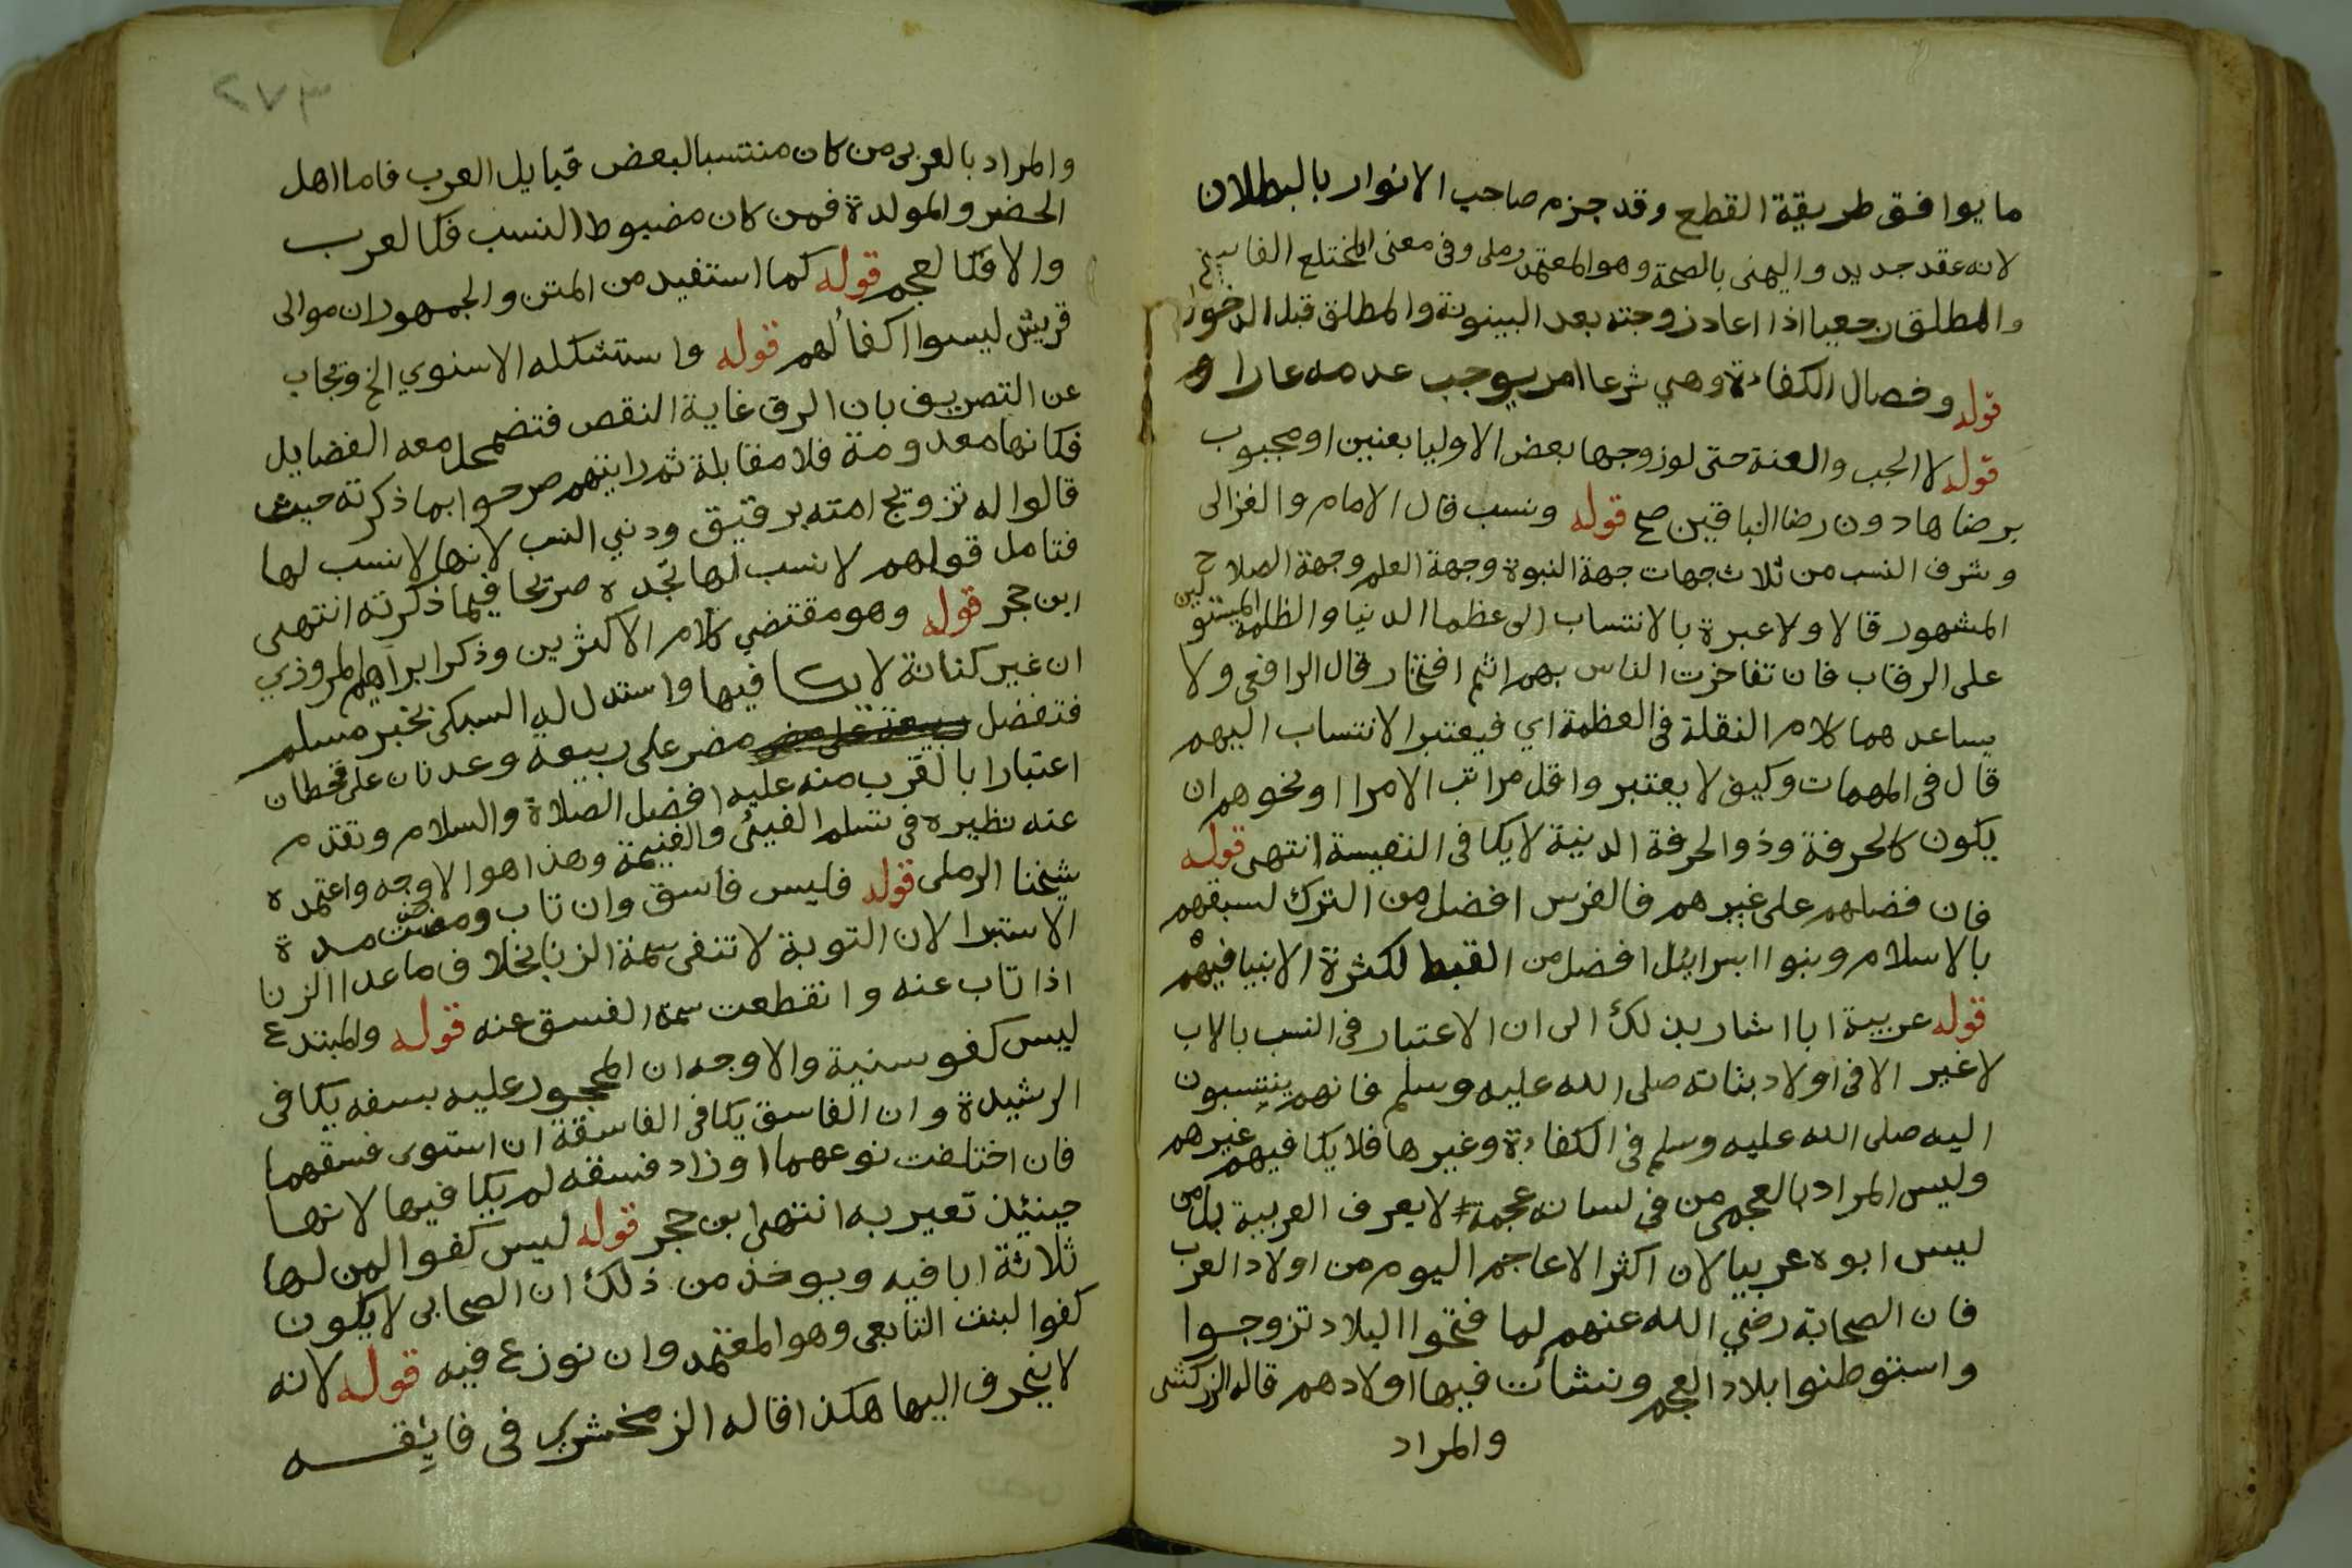 ما يوافق طريقة القطع وقد جزم صاحب الانوار بالبطلان
لانه عقد جديد واليمنى بالصحة وهو المعتمد رملى وفى معنى المختلع الفاسخ
والمطلق رجعيا اذا اعاد زوجته بعد البينونة والمطلق قبل الدخول
قوله وخصال الكفاءة وهي شرعا امر يوجب عدمه عارا
قوله لا الجب والعنة حتى لو زوجها بعض الاوليا بعنين او مجبوب
برضاها دون رضا الباقين صح قوله ونسب قال الامام والغزالى
وشرف النسب من ثلاث جهات جهة النبوة وجهة العلم وجهة الصلاح
المشهور قالا ولا عبرة بالانتساب الى عظما الدنيا والظلمة المستولين
على الرقاب فان تفاخرت الناس بهم اثم افتخار قال الرافعى ولا
يساعدهما كلام النقلة فى العظمة اي فيعتبر الانتساب اليهم
قال فى المهمات وكيف لا يعتبر واقل مراتب الامرا او نحوهم ان
يكون كالحرفة وذو الحرفة الدنية لا يكافى النفيسة انتهى قوله
فان فضلهم على غيرهم فالفرس افضل من الترك لسبقهم
بالاسلام وبنوا اسرائل افضل من القبط لكثرة الانبيا فيهم
قوله عربية ابا اشار بذلك الى ان الاعتبار فى النسب بالاب
لا غير الا فى اولاد بناته صلى الله عليه وسلم فانهم ينتسبون
اليه صلى الله عليه وسلم فى الكفاءة وغيرها فلا يكافيهم غيرهم
وليس المراد بالعجمى من فى لسانه عجمة لا يعرف العربية بل من
ليس ابوه عربيا لان اكثر الاعاجم اليوم من اولاد العرب
فان الصحابة رضي الله عنهم لما فتحوا البلاد تزوجوا
واستوطنوا بلاد العجم ونشأت فيها اولادهم قاله الزركشى
والمراد
٢٧٣
والمراد بالعربى من كان منتسبا لبعض قبايل العرب فاما اهل
الحضر والمولدة فمن كان مضبوط النسب فكالعرب
والا فكالعجم قوله كما استفيد من المتن والجمهور ان موالى
قريش ليسوا اكفأ لهم قوله واستشكله الاسنوي الخ ويجاب
عن التصريف بان الرق غاية النقص فتضمحل معه الفضايل
فكانها معدومة فلا مقابلة ثم رايتهم صرحوا بما ذكرته حيث
قالوا له تزويج امته برقيق ودني النسب لانها لا نسب لها
فتامل قولهم لا نسب لها تجده صريحا فيما ذكرته انتهى
ابن حجر قوله وهو مقتضى كلام الاكثرين وذكر ابراهيم المروذي
ان غير كنانة لا يكافيها واستدل له السبكى بخبر مسلم
فتفضل ربيعة على مضر مضر على ربيعه وعدنان على قحطان
اعتبارا بالقرب منه عليه افضل الصلاة والسلام وتقدم
عنه نظيره فى تسلم الفيئ والغنيمة وهذا هو الاوجه واعتمده
شيخنا الرملى قوله فليس فاسق وان تاب ومضت مدة
الاستبرا لان التوبة لا تنفى سمة الزنا بخلاف ما عدا الزنا
اذا تاب عنه وانقطعت سمة الفسق عنه قوله والمبتدع
ليس كفو سنية والاوجه ان المحجور عليه بسفه يكافى
الرشيدة وان الفاسق يكافى الفاسقة ان استوى فسقهما
فان اختلفت نوعهما او زاد فسقه لم يكافيها لانها
حينئذ تعير به انتهى ابن حجر قوله ليس كفوا لمن لها
ثلاثة ابا فيه ويوخذ من ذلك ان الصحابى لا يكون
كفوا لبنت التابعى وهو المعتمد وان نوزع فيه قوله لانه
لا ينجرف اليها هكذا قاله الزمخشري فى فايقه